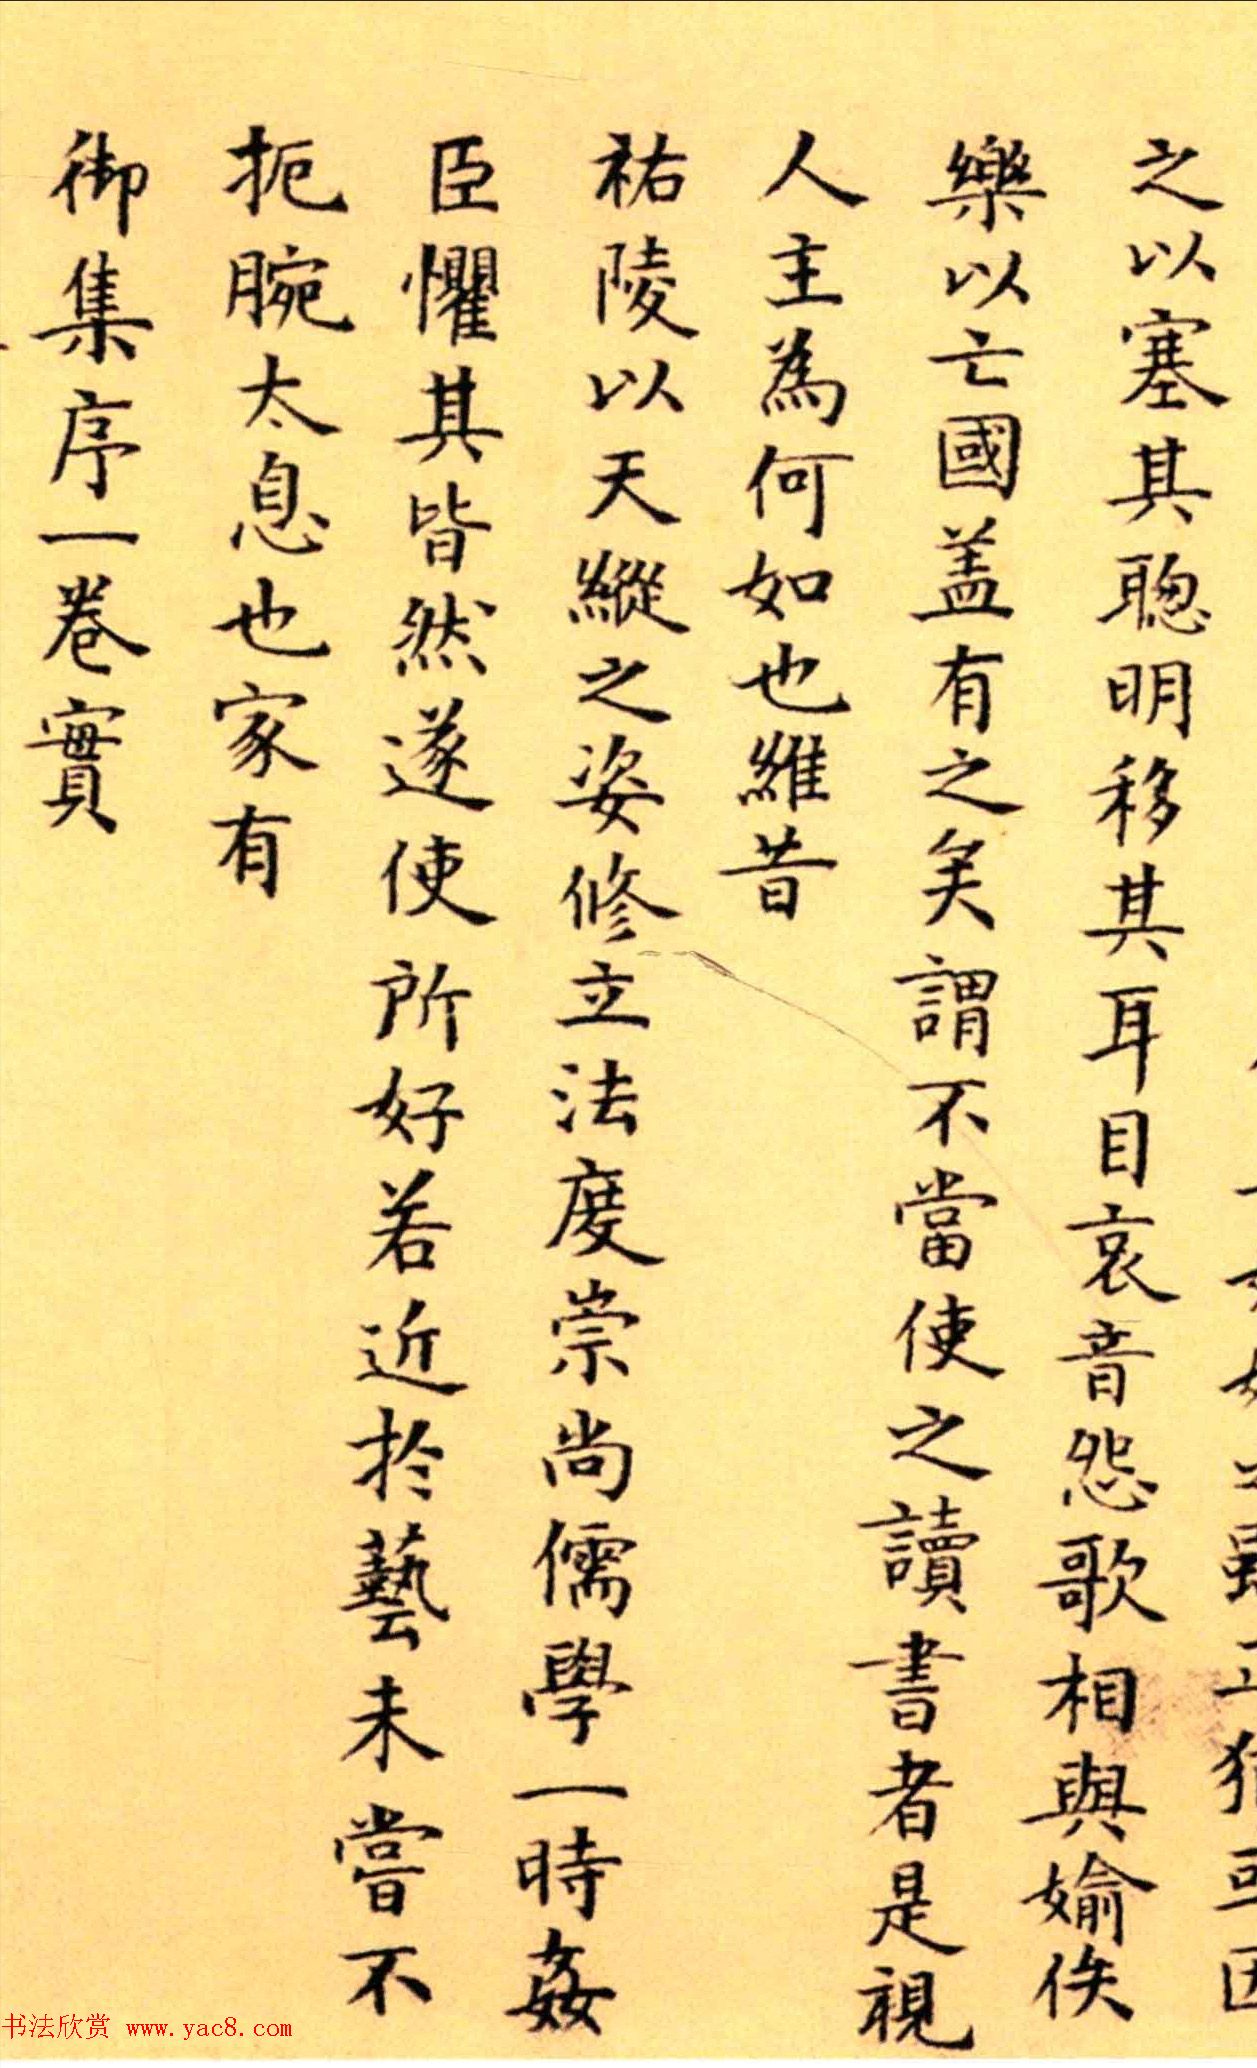 之以塞其聰明移其耳目哀音怨歌相與媮佚
樂以亡國盖有之矣謂不當使之讀書者是視
人主為何如也維昔
祐陵以天縱之姿修立法度崇尚儒學一時姦
臣懼其皆然遂使所好若近於藝未嘗不
扼腕太息也家有
御集序一卷實
书法欣赏 www.yac8.com